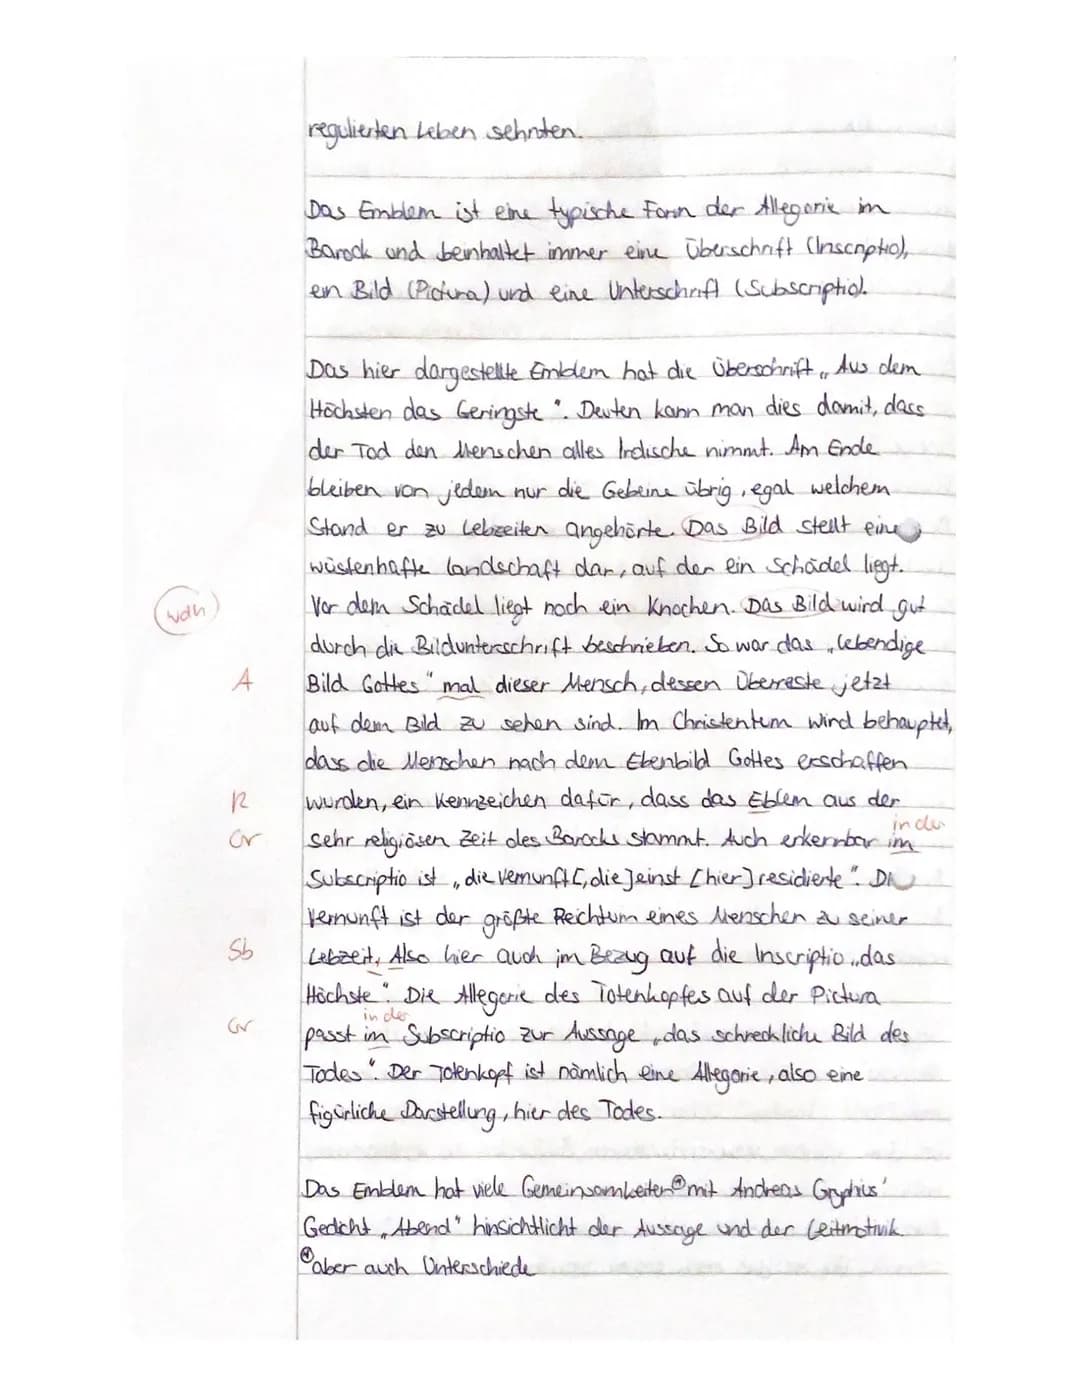 regulierten Leben sehnten.
Das Emblem ist eine typische Form der Allegorie im
Barock und beinhaltet immer eine Überschrift (Inscriptio),
ein Bild (Pictura) und eine Unterschrift (Subscriptio).
Das hier dargestellte Emblem hat die Überschrift „Aus dem
Höchsten das Geringste“. Deuten kann man dies damit, dass
der Tod den Menschen alles Irdische nimmt. Am Ende
bleiben von jedem nur die Gebeine übrig, egal welchem
Stand er zu Lebzeiten angehörte. Das Bild stellt eine
wüstenhafte Landschaft dar, auf der ein Schädel liegt.
wdh Vor dem Schädel liegt noch ein Knochen. Das Bild wird gut
durch die Bildunterschrift beschrieben. So war das „lebendige
A Bild Gottes“ mal dieser Mensch, dessen Überreste jetzt
auf dem Bild zu sehen sind. Im Christentum wird behauptet,
dass die Menschen nach dem Ebenbild Gottes erschaffen
R wurden, ein Kennzeichen dafür, dass das Eblem aus der
in der
Gr sehr religiösen Zeit des Barocks stammt. Auch erkennbar im
Subscriptio ist „die Vernunft[, die] einst [hier] residierte“. Die
Vernunft ist der größte Reichtum eines Menschen zu seiner
Sb Lebzeit, Also hier auch im Bezug auf die Inscriptio „das
Höchste“. Die Allegorie des Totenkopfes auf der Pictura
in der
Gr passt im Subscriptio zur Aussage „das schreckliche Bild des
Todes“. Der Totenkopf ist nämlich eine Allegorie, also eine
figürliche Darstellung, hier des Todes.
Das Emblem hat viele Gemeinsamkeiten mit Andreas Gryphius'
Gedicht „Abend“ hinsichtlicht der Aussage und der Leitmotivik
aber auch Unterschiede